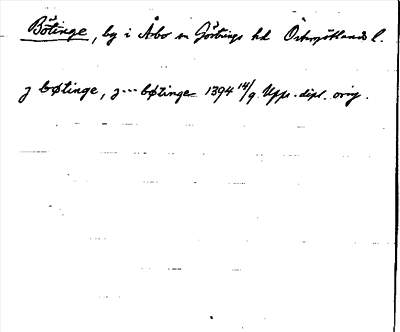 Bötinge, by i Åbo sn Göstrings hd Östergötlands l.
j bøtinge, j --- bøtinge 1394 14/9. Upps. dipl. orig.